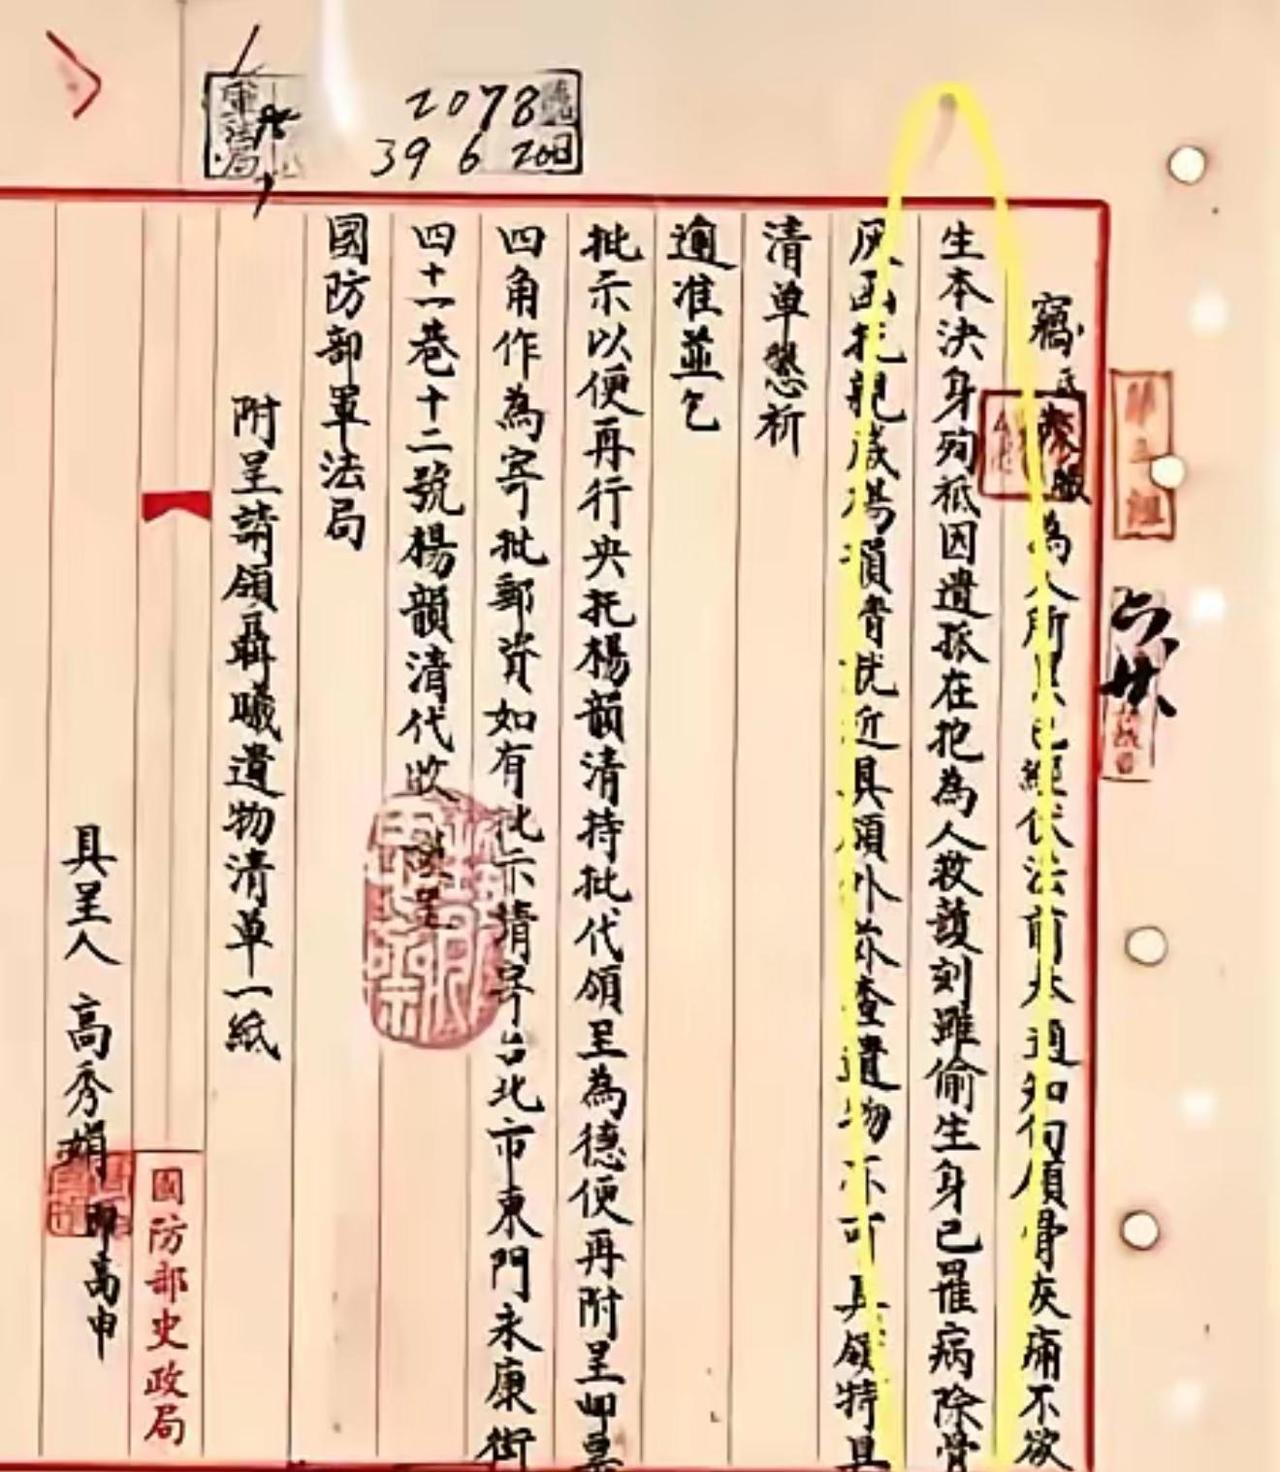 2078
39 6 20日
軍法局
竊氏為人所累已經伏法前天通知向領骨灰痛不欲
生本決身殉祗因遺孤在抱為人救護刻雖偷生身已罹病除骨
灰函托親戚楊韻清就近具領外茲查遺物亦可具領特具
清單懇祈
逾准並乞
批示以便再行央托楊韻清持批代領呈為德便再附呈郵票
四角作為寄批郵資如有批示請寄台北市東門永康街
四十一巷十二號楊韻清代收 謹呈
國防部軍法局
附呈請領聶曦遺物清單一紙
具呈人 高秀娟 即高申
國防部史政局